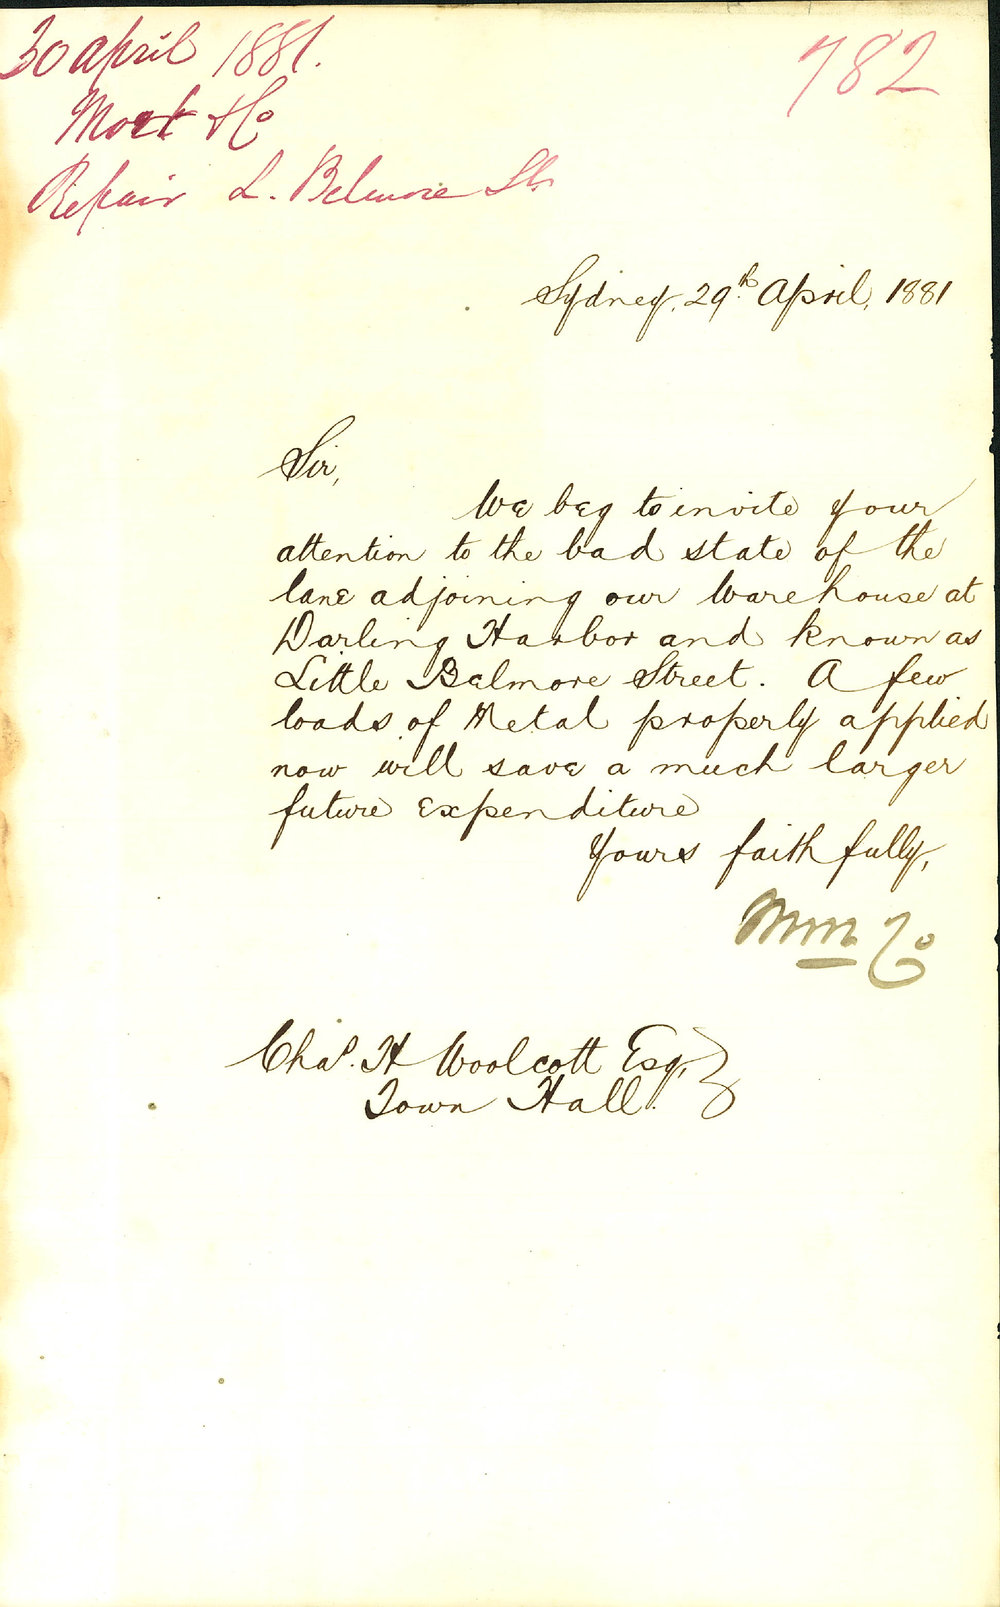 30 April 1881.
782
Mort & Co
Repair L. Belmore St.
Sydney, 29th April, 1881
Sir,
We beg to invite your
attention to the bad state of the
lane adjoining our Warehouse at
Darling Harbor and known as
Little Belmore Street. A few
loads of Metal properly applied
now will save a much larger
future expenditure
Yours faithfully,
Co
Chas. H Woolcott Esq,
Town Hall.